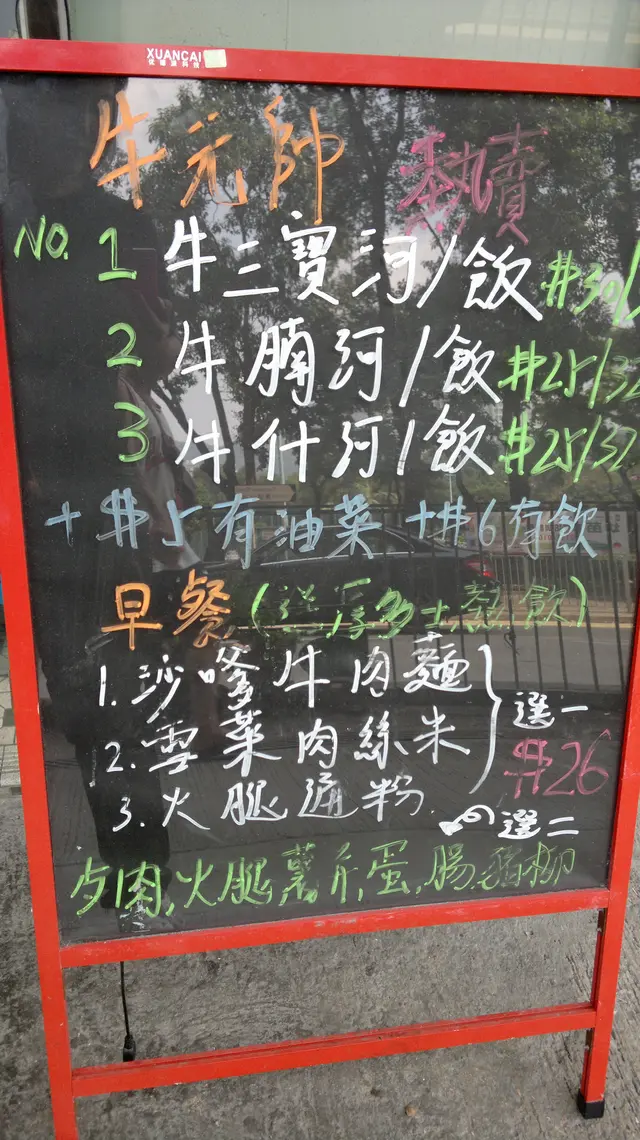 XUANCAI
牛元帥 熱賣
NO. 1 牛三寶河/飯 $30/
2 牛腩河/飯 $25/32
3 牛什河/飯 $25/32
+$5有油菜 +$6有飲
早餐(送厚多士熱飲)
1. 沙嗲牛肉麵
2. 雪菜肉絲米
3. 火腿通粉
選一
$26
選二
午肉,火腿,薯餅,蛋,腸,豬柳